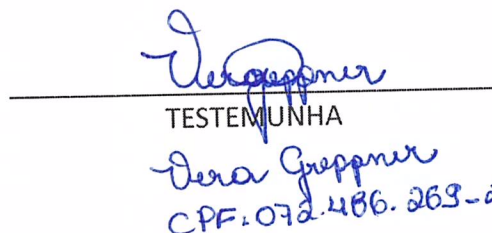 Veragreppner
TESTEMUNHA
Vera Greppner
CPF: 072.486.269-2